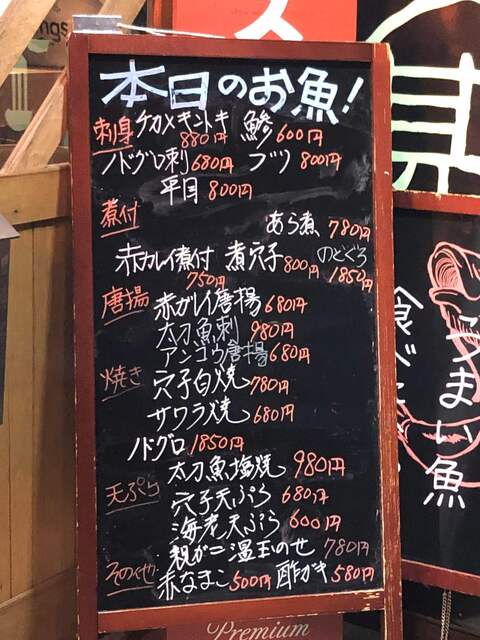 本日のお魚!
刺身 チカメキントキ 鯵 600円
880円
ノドグロ刺 680円 ブツ 800円
平目 800円
煮付
あら煮、780円
赤カレイ煮付 煮穴子 800円 のどぐろ
750円 1850円
唐揚 赤ガレイ唐揚 680円
太刀魚刺 980円
アンコウ唐揚 680円
焼き 穴子白焼 780円
サワラ焼 680円
ノドグロ 1850円
太刀魚塩焼 980円
天ぷら 穴子天ぷら 680円
海老天ぷら 600円
親ガニ温玉のせ 780円
その他 赤なまこ 500円 酢ガキ 580円
Premium
うまい魚
食べ
ngs